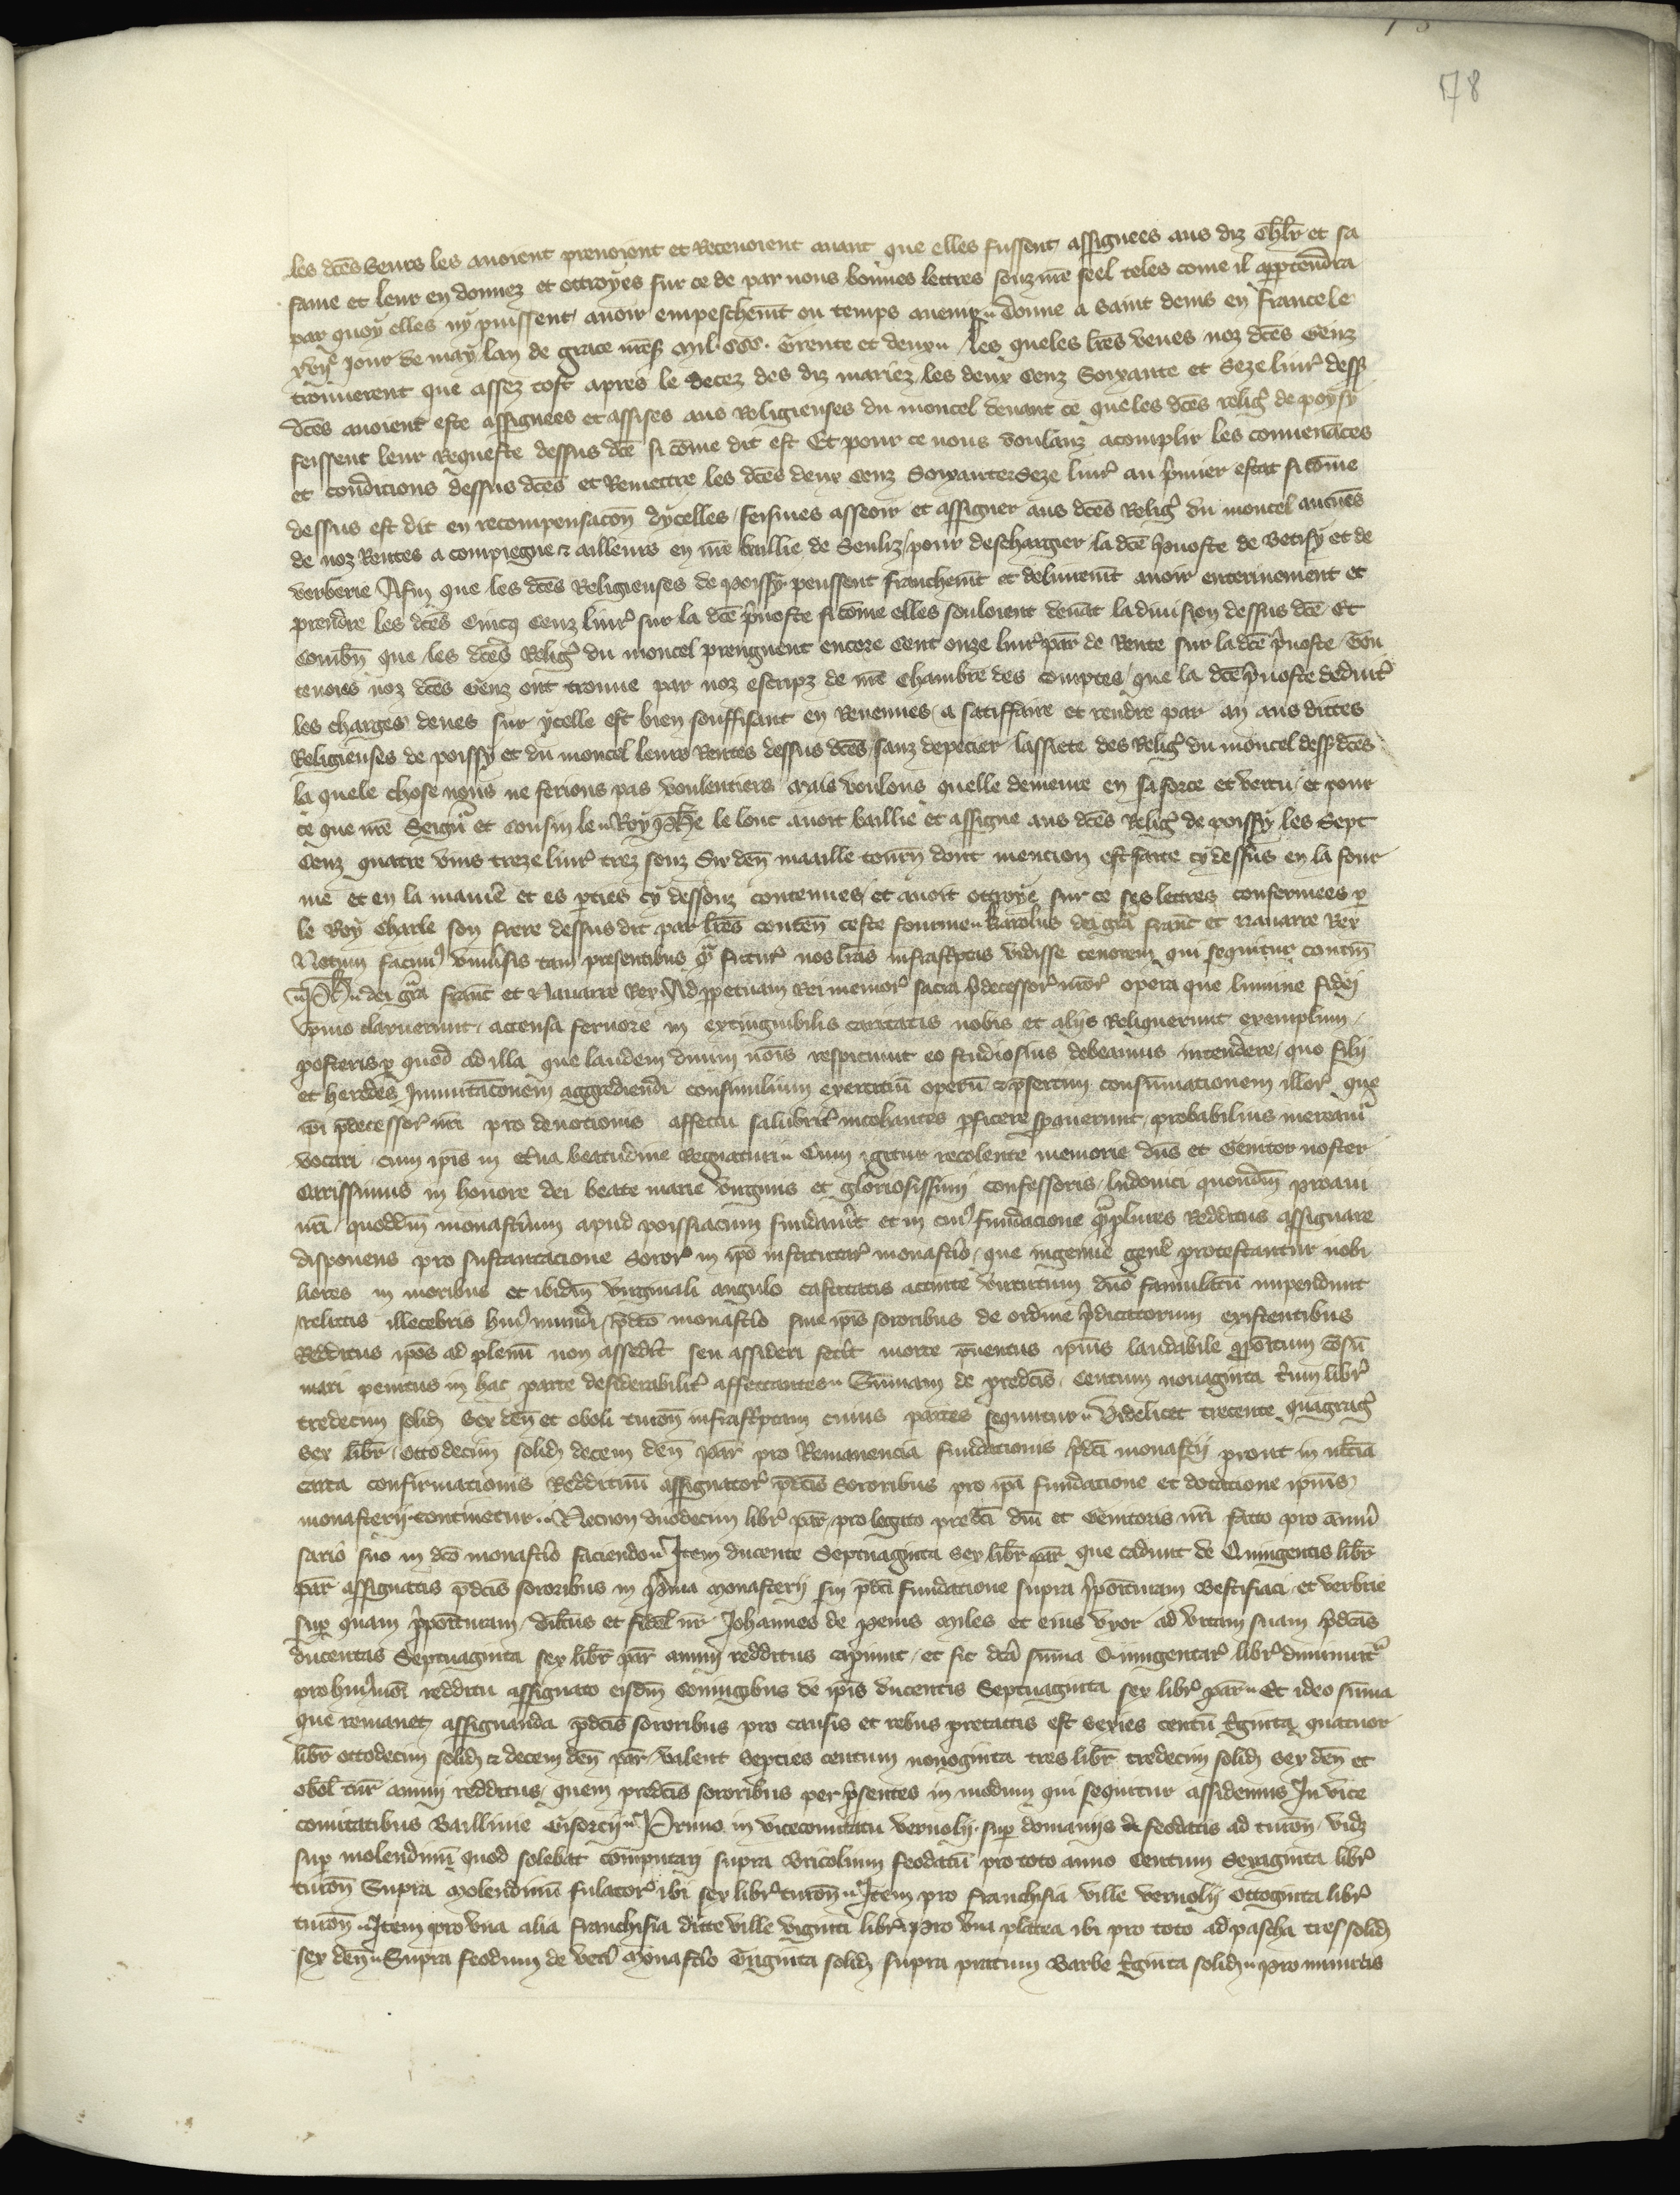 78
les dc̄es seurs les auoient prenoient et Receuoient auant que elles fussent assignees aus diz Ch̄lr et sa
fame et leur en donnez et ottroyes sur ce de par nous bonnes lettres souz nr̄e seel teles come il appertendra
par quoy elles ny puissent auoir empeschem̄t ou temps auenir Donne a Saint denis en France le
xvije jour de may lan de grace mil. CCC. Trente et deux les queles lr̄es veues noz dc̄es Genz
trouuerent que assez tost apres le decez des diz mariez les deux Cenz Soixante et Seze liur̾ dess̾
dc̄es auoient este assignees et assises aus Religieuses du moncel deuant ce que les dc̄es relig̾ de poyssy
feissent leur Requeste dessus dc̄e si cōme dit est Et pour ce nous voulanz acomplir les conuenāces
et condicions dessus dc̄es et Remettre les dc̄es deux Cenz Soixante Seze liur̾ au p̾mier estat si cōme
dessus est dit en recompensacōn dycelles feismes asseoir et assigner aus dc̄es Relig̾ du moncel aucūes
de noz Rentes a compiegne & ailleurs en nr̄e baillie de Senliz pour deschargier la dc̄e p̾uoste de Betisy et de
verberie Afin que les dc̄es Religieuses de poissy peussent franchem̄t et deliurem̄t auoir enterinement et
prendre les dc̄es Cincq Cenz liur̾ sur la dc̄e p̾uoste si cōme elles souloient deuāt la diuision dessus dc̄e Et
Combn̄ que les dc̄es Relig̾ du moncel preignent encore Cent onze liur̾ par̄ de Rente sur la dc̄e p̾uoste Tou
teuoies noz dc̄es Genz ont trouue par noz escripz de nr̄e Chambre des comptes que la dc̄e p̾uoste deduit̾
les charges deues sur ycelle est bien souffisant en Reuenues a satiffaire et rendre par an aus dittes
Religieuses de poissy et du moncel leurs Rentes dessus dc̄es sanz depecier lassiete des Relig̾ du moncel dess̾ dc̄es
la quele chose nous ne ferions pas voulentiers Mais voulons quelle demeure en sa force et vertu et pour
ce que nr̄e Seign̾ et Cousin le Roy Ph̄e le lonc auoit baillie et assigne aus dc̄es Relig̾ de poissy les Sept
Cenz quatre vins treze liur̾ trez souz Six den̄ maaille tourn̄ dont mencion est faite cy dessus en la four
me et en la manie̾ et es p̱ties cy dessouz contenues et auoit ottroye sur ce ses lettres confermees p̱
le Roy Charle son frere dessus dit par lr̄es conten̄ ceste fourme Karolus dei gr̄a franc̄ et nauarre Rex
Notum facim̾ vniu̾sis tam presentibus q̾ futur̾ nos lr̄as infrasc̾ptas vidisse tenorem qui sequitur contin̄
Ph̄ dei gr̄a franc̄ et Nauarre Rex Ad p̱petuam Rei memor̾ sacra p̾decessor̾ nr̄or̾ opera que lumine fidei
p̾mo claruerunt accensa feruore in extinguibilis caritatis nobis et alijs Reliquerunt exemplum
posteris quod ad illa que laudem diuini nōis respiciunt eo studiosius debeamus intendere quo filij
et heredes Inmutacōnem aggrediendi consimilium exercitiū operū & p̾sertim consummationem illor̾ que
ijdē p̄decessor̾ nr̄i pro deuotionis affectu salubrit̾ inchoantes p̱ficere p̱posuerunt probabilius mereamͬ
vocari cum ip̄is in et̾na beatud̾ine Regnaturi Cum igitur recolente memorie dn̄s et Genitor noster
Carissimus in honore dei beate marie virginis et gloriosissimi confessoris ludouici quondm̄ proaui
nr̄i quoddm̄ monast̾ium apud poissiacum fundau̾it et in cui̾ fundacione q̾mplures Redditus assignare
disponens pro sustentacione Soror̾ in ip̄o instituta̾ monast̾io que ingenue gen̾e protestantur nobi
liores in moribus et ibidm̄ virginali angulo castitatis accinte virtutum dn̄o famulatū impendunt
relictis illecebris hui̾ mundi p̄dc̄o monast̾io siue ip̄is sororibus de ordine p̾dicatorum existentibus
Redditus ip̄os ad plenū non assed̾it seu assideri fec̾it morte p̄uentus ipsiu̾s laudabile p̱positum ēsū
mari penitus in hac parte desiderabilit̾ affectantes Summam de predc̄is Centum nonaginta t̾ium libr̾
tredecim solid̾ sex den̄ et oboli turon̄ infrasc̾ptam cuius partes sequntur Videlicet trecente q̾drag̾
sex libr̄ Octodecim solid̾ decem den̄ par̄ pro Remanencia fundationis p̾dc̄i monast̾ij prout in
carta confirmationis Reddituū assignator̾ p̄dc̄is Sororibus pro ip̄a fundacione et dotacione ipsiu̾s
monasterij continetur Necnon duodecim libr̾ par̄ pro legato predc̄i dn̄i et Genitoris nr̄i facto pro anniu̾
sario suo in dc̄o monast̾io faciendo Item ducente Septuaginta sex libr̄ par̄ que cadunt de Quingentis libr̄
par̄ assignatis p̄dc̄is sororibus in p̾ma monasterij sui p̄dc̄i fundacione supra p̾posituram Bestisiaci et verbrie
sup̱ quam p̾posituram dilc̄us et fidel̄ nr̄ Johannes de Miles et eius vxor ad vitam suam p̾dc̄as
ducentas Septuaginta sex libr̄ par̄ annui redditus capiunt et sic dc̄a sūma Quingentar̾ libr̾ diminuit̾
pro hui̾mōi redditu assignato eisdm̄ Coniugibus de ip̄is ducentis Septuaginta sex libr̾ par̄ Et ideo sūma
que remanet assignanda p̄dc̄is sororibus pro causis et rebus pretactis est series centū t̾ginta quatuor
libr̄ octodecim solid̾ & decem den̄ par̄ valent septies centum nonoginta tres libr̄ tredecim solid̾ sex den̄ et
obol̄ tur̄ annui redditus quem predc̄is sororibus per p̾sentes in modum qui sequitur assidemus In vice
comitatibus Baillinie Gisorcij Primo in vicecomitatu vernolij sup̱ domanijs de feodatis ad turon̄ vid̾
sup̱ molendinū quod solebat computari supra Bricolium feodatū pro toto anno Centum Sexaginta libr̾
turon̄ Supra Molendinū fulator̾ ibi sex libr̾ turon̄ Item pro franchisia ville vernolij Ottoginta libr̾
turon̄ Item pro vna alia franchisia dicte ville viginti libr̾ pro vna platea ibi pro toto ad pascha tres solid̾
sex den̄ Supra feodum de vet̾i Monast̾io Triginta solid̾ supra pratum Barbe t̾ginta solid̾ pro minutis